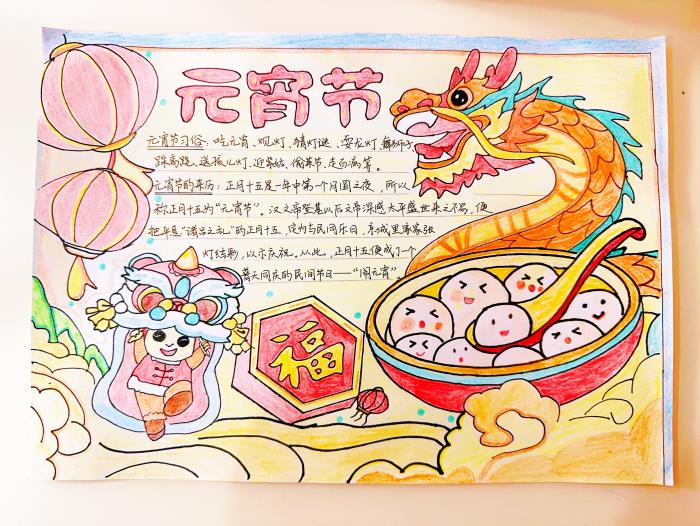 元宵节
元宵节习俗：吃元宵、观灯、猜灯谜、耍龙灯、舞狮子
踩高跷、送孩儿灯、迎紫姑、偷菜节、走百病等。
元宵节的来历：正月十五是一年中第一个月圆之夜，所以
称正月十五为“元宵节”。汉文帝登基以后文帝深感太平盛世来之不易，便
把平息“诸吕之乱”的正月十五，定为与民同乐日，京城里家家张
灯结彩，以示庆祝。从此，正月十五便成了一个
普天同庆的民间节日——“闹元宵”。
福